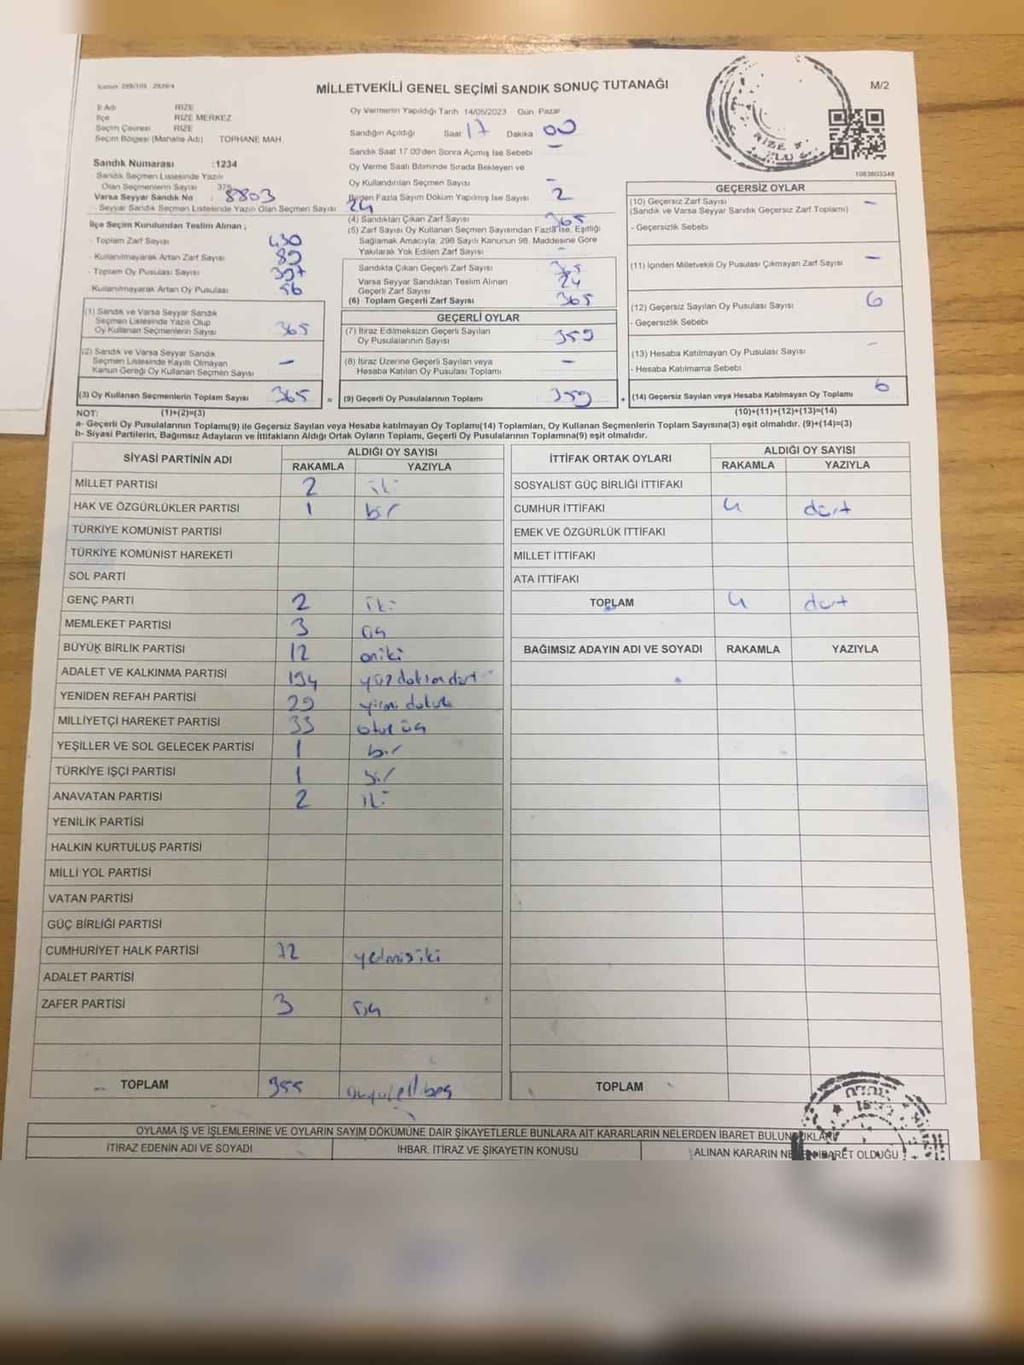 MİLLETVEKİLİ GENEL SEÇİMİ SANDIK SONUÇ TUTANAĞI
M/2
İl Adı RİZE
İlçe RİZE MERKEZ
Seçim Çevresi RİZE
Seçim Bölgesi (Mahalle Adı) TOPHANE MAH.
Sandık Numarası :1234
Sandık Seçmen Listesinde Yazılı
Olan Seçmenlerin Sayısı
Varsa Seyyar Sandık No : 8803
Seyyar Sandık Seçmen Listesinde Yazılı Olan Seçmen Sayısı 24
İlçe Seçim Kurulundan Teslim Alınan ;
- Toplam Zarf Sayısı 430
- Kullanılmayarak Artan Zarf Sayısı
- Toplam Oy Pusulası Sayısı
Kullanılmayarak Artan Oy Pusulası
(1) Sandık ve Varsa Seyyar Sandık
Seçmen Listesinde Yazılı Olup
Oy Kullanan Seçmenlerin Sayısı 365
(2) Sandık ve Varsa Seyyar Sandık
Seçmen Listesinde Kayıtlı Olmayan
Kanun Gereği Oy Kullanan Seçmen Sayısı –
(3) Oy Kullanan Seçmenlerin Toplam Sayısı 365
(1)+(2)=(3)
Oy Vermenin Yapıldığı Tarih 14/05/2023 Gün Pazar
Sandığın Açıldığı Saat 17 Dakika 00
Sandık Saat 17.00'den Sonra Açılmış İse Sebebi –
Oy Verme Saati Bitiminde Sırada Bekleyen ve
Oy Kullandırılan Seçmen Sayısı –
Birden Fazla Sayım Döküm Yapılmış İse Sayısı 2
(4) Sandıktan Çıkan Zarf Sayısı 365
(5) Zarf Sayısı Oy Kullanan Seçmen Sayısından Fazla İse, Eşitliği
Sağlamak Amacıyla, 298 Sayılı Kanunun 98. Maddesine Göre
Yakılarak Yok Edilen Zarf Sayısı –
Sandıkta Çıkan Geçerli Zarf Sayısı
Varsa Seyyar Sandıktan Teslim Alınan
Geçerli Zarf Sayısı 24
(6) Toplam Geçerli Zarf Sayısı 365
GEÇERLİ OYLAR
(7) İtiraz Edilmeksizin Geçerli Sayılan
Oy Pusulalarının Sayısı 359
(8) İtiraz Üzerine Geçerli Sayılan veya
Hesaba Katılan Oy Pusulası Toplamı –
(9) Geçerli Oy Pusulalarının Toplamı 359
1083603348
GEÇERSİZ OYLAR
(10) Geçersiz Zarf Sayısı –
(Sandık ve Varsa Seyyar Sandık Geçersiz Zarf Toplamı)
- Geçersizlik Sebebi
(11) İçinden Milletvekili Oy Pusulası Çıkmayan Zarf Sayısı –
(12) Geçersiz Sayılan Oy Pusulası Sayısı 6
- Geçersizlik Sebebi
(13) Hesaba Katılmayan Oy Pusulası Sayısı –
- Hesaba Katılmama Sebebi
(14) Geçersiz Sayılan veya Hesaba Katılmayan Oy Toplamı 6
(10)+(11)+(12)+(13)=(14)
NOT:
a- Geçerli Oy Pusulalarının Toplamı(9) ile Geçersiz Sayılan veya Hesaba Katılmayan Oy Toplamı(14) Toplamları, Oy Kullanan Seçmenlerin Toplam Sayısına(3) eşit olmalıdır. (9)+(14)=(3)
b- Siyasi Partilerin, Bağımsız Adayların ve İttifakların Aldığı Ortak Oyların Toplamı, Geçerli Oy Pusulalarının Toplamına(9) eşit olmalıdır.
SİYASİ PARTİNİN ADI ALDIĞI OY SAYISI
RAKAMLA YAZIYLA
MİLLET PARTİSI 2 iki
HAK VE ÖZGÜRLÜKLER PARTİSI 1 bir
TÜRKİYE KOMÜNİST PARTİSI
TÜRKİYE KOMÜNİST HAREKETİ
SOL PARTİ
GENÇ PARTİ 2 iki
MEMLEKET PARTİSI 3 üç
BÜYÜK BİRLİK PARTİSI 12 oniki
ADALET VE KALKINMA PARTİSI 194 yüzdoksandört
YENİDEN REFAH PARTİSI 29 yirmidokuz
MİLLİYETÇİ HAREKET PARTİSI 33 otuzüç
YEŞİLLER VE SOL GELECEK PARTİSI 1 bir
TÜRKİYE İŞÇİ PARTİSI 1 bir
ANAVATAN PARTİSI 2 iki
YENİLİK PARTİSI
HALKIN KURTULUŞ PARTİSI
MİLLİ YOL PARTİSI
VATAN PARTİSI
GÜÇ BİRLİĞİ PARTİSI
CUMHURİYET HALK PARTİSI 72 yetmişiki
ADALET PARTİSI
ZAFER PARTİSI 3 üç
TOPLAM 355 üçyüzellibeş
İTTİFAK ORTAK OYLARI ALDIĞI OY SAYISI
RAKAMLA YAZIYLA
SOSYALİST GÜÇ BİRLİĞİ İTTİFAKI
CUMHUR İTTİFAKI 4 dört
EMEK VE ÖZGÜRLÜK İTTİFAKI
MİLLET İTTİFAKI
ATA İTTİFAKI
TOPLAM 4 dört
BAĞIMSIZ ADAYIN ADI VE SOYADI RAKAMLA YAZIYLA
TOPLAM
OYLAMA İŞ VE İŞLEMLERİNE VE OYLARIN SAYIM DÖKÜMÜNE DAİR ŞİKAYETLERLE BUNLARA AİT KARARLARIN NELERDEN İBARET BULUNDUKLARI
İTİRAZ EDENİN ADI VE SOYADI İHBAR, İTİRAZ VE ŞİKAYETİN KONUSU ALINAN KARARIN NEDEN İBARET OLDUĞU